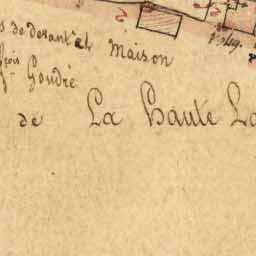 de desant et Maison
frois Goudré
de La Haute La